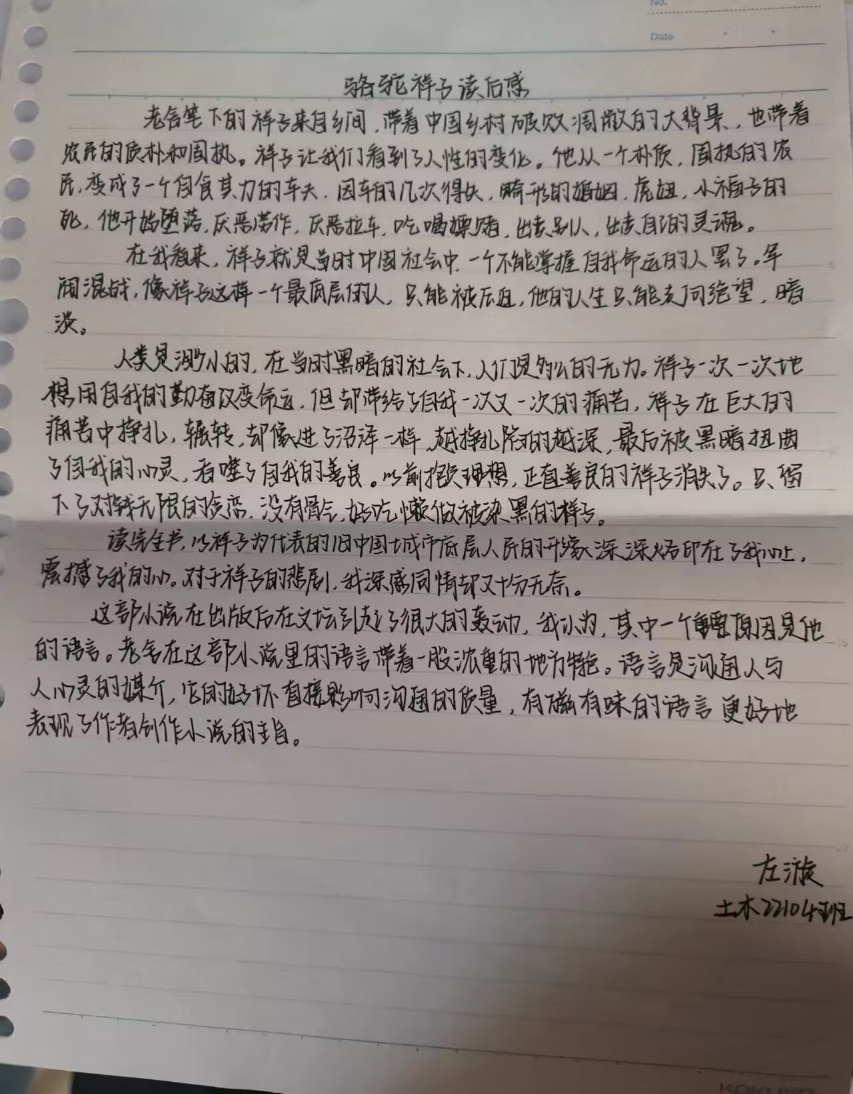 No.
Date
骆驼祥子读后感
老舍笔下的祥子来自乡间，带着中国乡村破败凋敝的大背景，也带着
农民的质朴和固执。祥子让我们看到了人性的变化。他从一个朴质，固执的农
民，变成了一个自食其力的车夫，因车的几次得失，畸形的婚姻，虎妞，小福子的
死，他开始堕落，厌恶劳作，厌恶拉车，吃喝嫖赌，出卖别人，出卖自己的灵魂。
在我看来，祥子就是当时中国社会中一个不能掌握自我命运的人罢了。军
阀混战，像祥子这样一个最底层的人，只能被压迫，他的人生只能走向绝望，暗
淡。
人类是渺小的，在当时黑暗的社会下，人们是多么的无力。祥子一次一次地
想用自我的勤奋改变命运，但却带给了自我一次又一次的痛苦，祥子在巨大的
痛苦中挣扎，辗转，却像进了沼泽一样，越挣扎陷的越深，最后被黑暗扭曲
了自我的心灵，吞噬了自我的善良。以前抱负理想，正直善良的祥子消失了。只留
下了对钱无限的贪恋，没有骨气，好吃懒做被染黑的样子。
读完全书，以祥子为代表的旧中国城市底层人民的形象深深烙印在了我心上，
震撼了我的心。对于祥子的悲剧，我深感同情却又十分无奈。
这部小说在出版后在文坛引起了很大的轰动，我认为，其中一个重要原因是他
的语言。老舍在这部小说里的语言带着一股浓重的地方特色。语言是沟通人与
人心灵的媒介，它的好坏直接影响沟通的质量，有滋有味的语言更好地
表现了作者创作小说的主旨。
左漩
土木22104班
KOKUYO